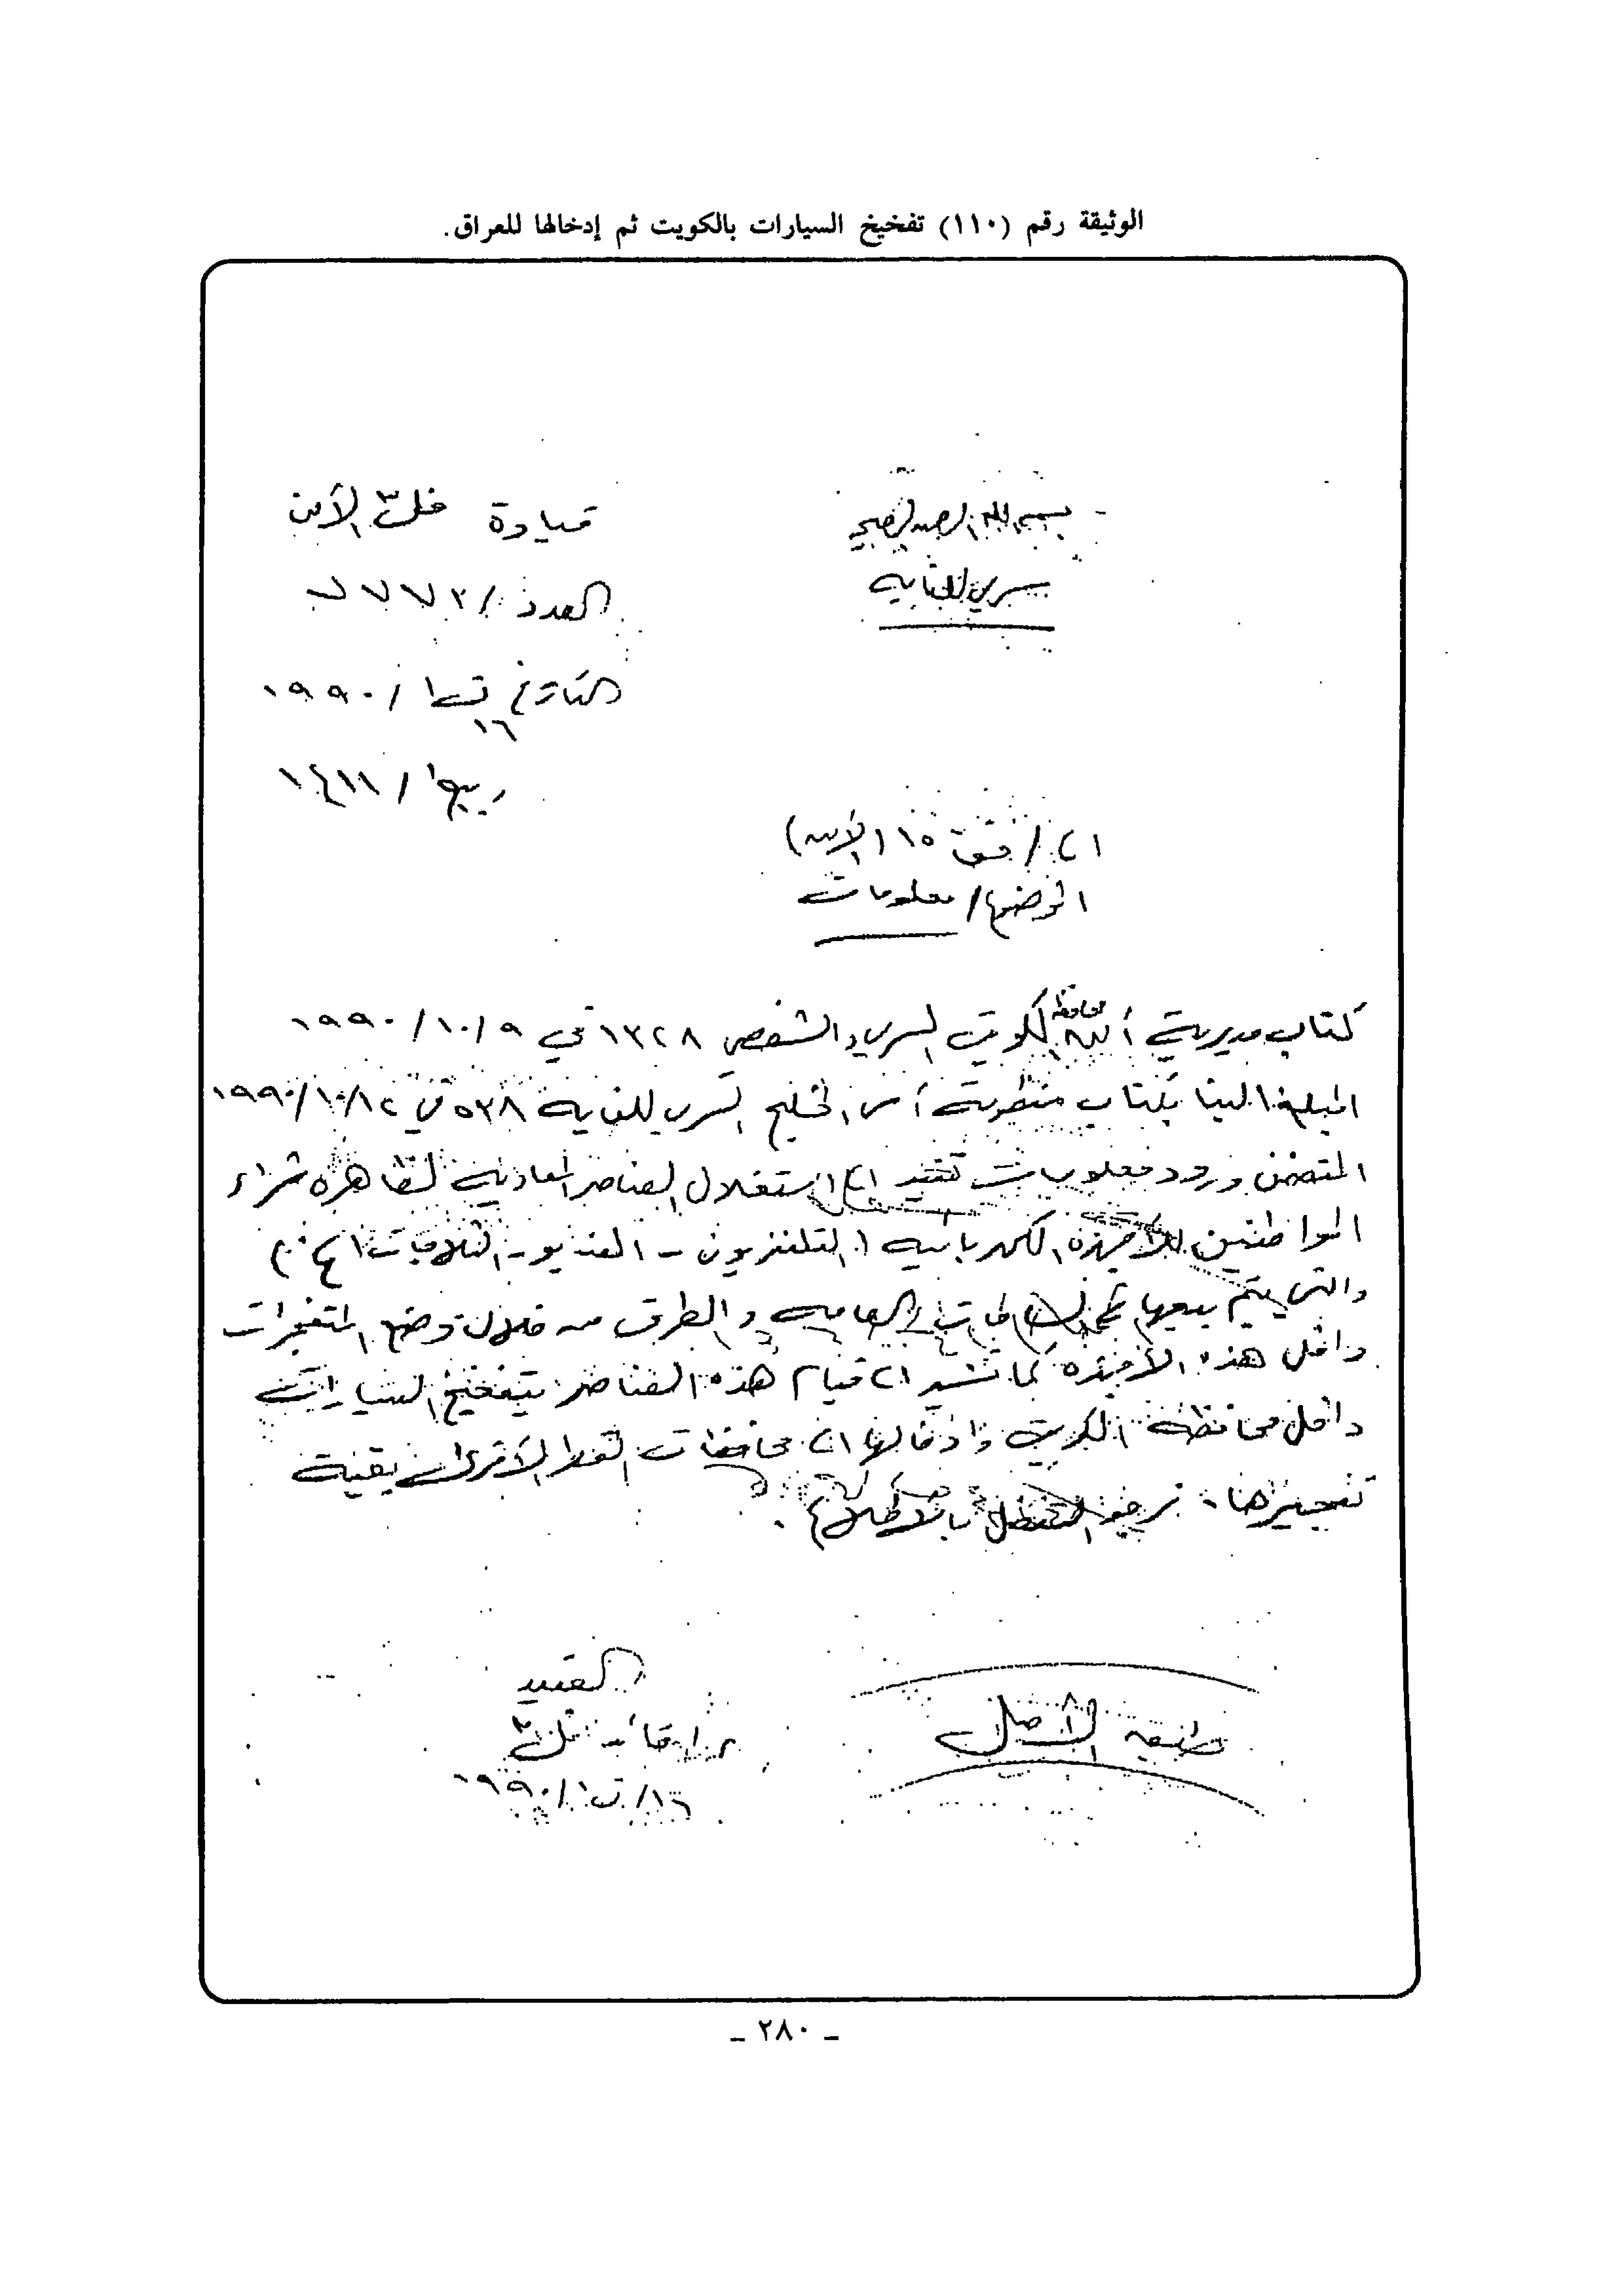 الوثيقة رقم (١١٠) تفخيخ السيارات بالكويت ثم إدخالها للعراق.
بسم الله الرحمن الرحيم
قيادة فلق٣ الأمن
سري للغاية
العدد / ٧٧٧٣
التاريخ ت١ / ١٩٩٠
١٦
ربيع١ / ١٤١١
الى / ١٥ (الأمن)
الموضوع / معلومات
كتاب مديرية أمن محافظة الكويت السري والشخصي ١٣٢٨ في ٩/١٠/١٩٩٠
المبلغ الينا بكتاب منظومة أمن الخليج السري للغاية ٥٣٨ في ١٢/١٠/١٩٩٠
المتضمن ورود معلومات تفيد الى استغلال العناصر المعادية لظاهرة شراء
المواطنين للأجهزة الكهربائية (التلفزيون - الفديو - الثلاجات الخ)
والتي يتم بيعها في الساحات العامه والطرق من خلال وضع المتفجرات
داخل هذه الأجهزه كما تشير الى قيام هذه العناصر بتفخيخ السيارات
داخل محافظة الكويت وادخالها الى محافظات القطر الأخرى بغية
تفجيرها . نرجو التفضل بالاطلاع .
العقيد
طبق الأصل
قائد
١٦/ت١/١٩٩٠
- ٢٨٠ -